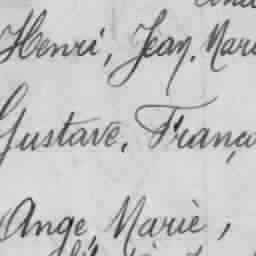 Henri, Jean, Mari
Gustave, Franço
Ange, Marie,